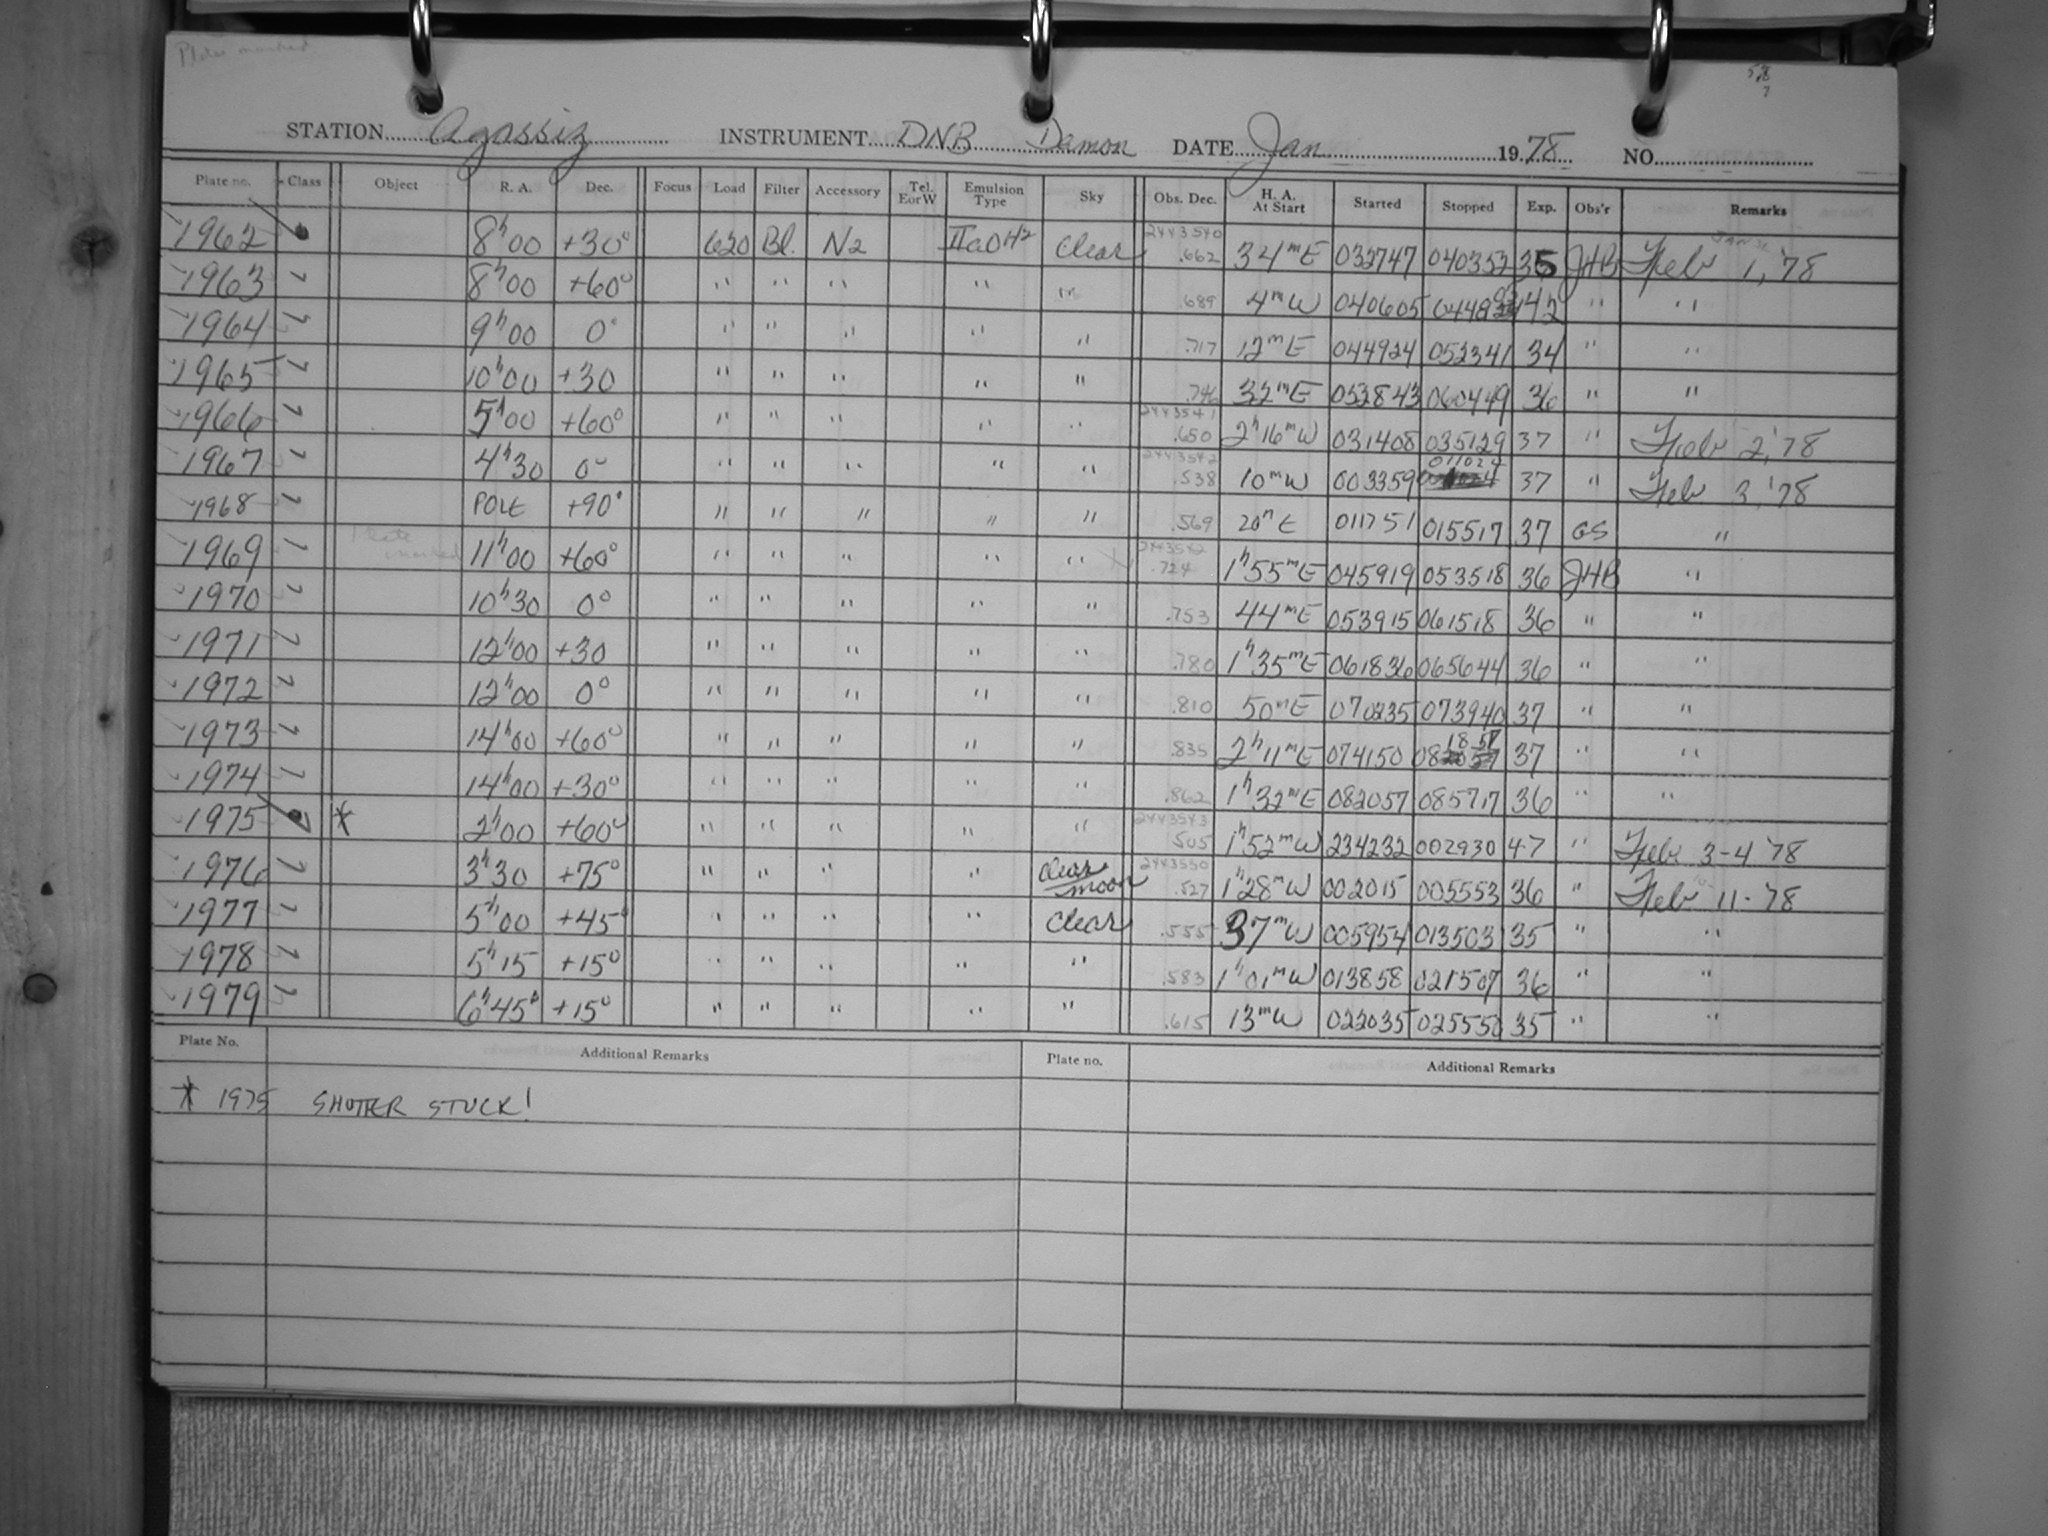 Plates marked
STATION Agassiz INSTRUMENT DNB Damon DATE Jan 1978 NO.
Plate no. Class Object R. A. Dec. Focus Load Filter Accessory Tel. E or W Emulsion Type Sky Obs. Dec. H. A. At Start Started Stopped Exp. Obs'r Remarks
1962 8h00 +30° 620 Bl. N2 IIaOH2 Clear 2443540 .662 34mE 032747 040352 35 JHB Feb 1, '78
1963 8h00 +60° " " " " " .689 4mW 040605 42 " "
1964 9h00 0° " " " " " .717 12mE 044924 052341 34 " "
1965 10h00 +30 " " " " " .746 32mE 052843 060449 36 " "
1966 5h00 +60° " " " " " 2443541 .650 2h16mW 031408 035129 37 " Feb 2, '78
1967 4h30 0° " " " " " 2443542 .538 10mW 003359 011024 37 " Feb 3, '78
1968 POLE +90° " " " " " .569 20m E 011751 015517 37 GS "
1969 Plate marked 11h00 +60° " " " " " 2443542 .724 1h55mE 045919 053518 36 JHB "
1970 10h30 0° " " " " " .753 44mE 053915 061518 36 " "
1971 12h00 +30 " " " " " .780 1h35mE 061836 065644 36 " "
1972 12h00 0° " " " " " .810 50mE 070235 073940 37 " "
1973 14h00 +60° " " " " " .835 2h11mE 074150 081857 37 " "
1974 14h00 +30° " " " " " .862 1h32mE 082057 085717 36 " "
1975 * 2h00 +60° " " " " " 2443543 .505 1h52mW 234232 002930 47 " Feb 3-4 '78
1976 3h30 +75° " " " " Clear moon 2443550 .527 1h28mW 002015 005553 36 " Feb 11-'78
1977 5h00 +45° " " " " Clear .555 37mW 005954 013503 35 " "
1978 5h15 +15° " " " " " .583 1h01mW 013858 021507 36 " "
1979 6h45 +15° " " " " " .615 13mW 022035 025550 35 " "
Plate No. Additional Remarks Plate no. Additional Remarks
* 1975 SHUTTER STUCK!